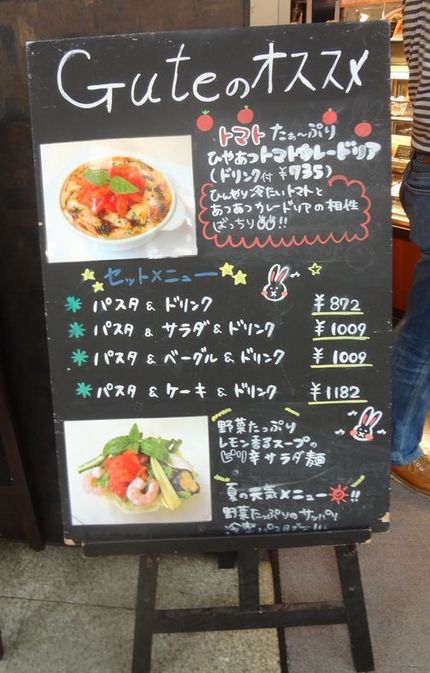 Guteのオススメ
トマト たぁ〜ぷり
ひやあつトマトカレードリア
(ドリンク付 ¥735)
ひんやり冷たいトマトと
あつあつカレードリアの相性
ばっちり!!
セットメニュー
パスタ & ドリンク ¥872
パスタ & サラダ & ドリンク ¥1009
パスタ & ベーグル & ドリンク ¥1009
パスタ & ケーキ & ドリンク ¥1182
野菜たっぷり
レモン香るスープの
ピリ辛サラダ麺
夏の元気メニュー!!
野菜たっぷりのサッパリ